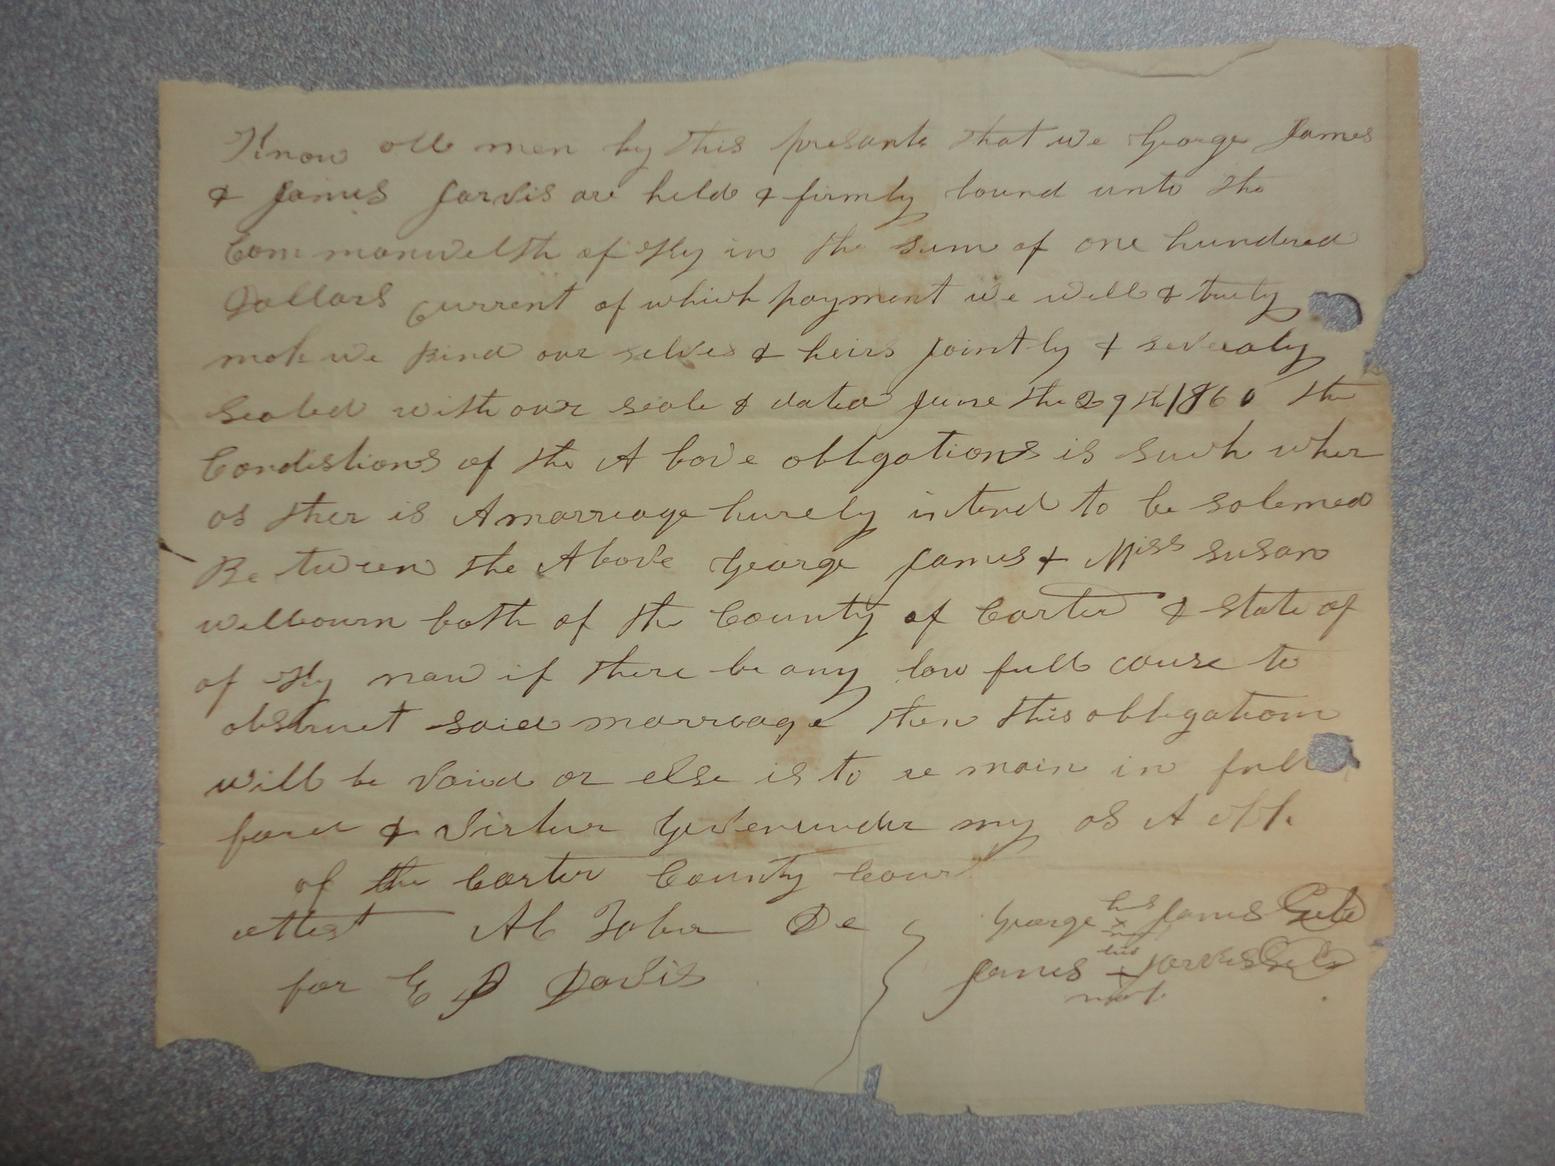 Know all men by this presants that we George James
& James Jarvis are held & firmly bound unto the
Commonwelth of Ky in the sum of one hundred
Dollars current of which payment we well & truly
mak we Bind our selves & heirs jointly & severaly
Sealed with our seals & dated June the 29th 1860 the
Condistions of the A bove obligations is such wher
as ther is A marriage hurely intend to be solemed
Be tween the Above George James & Miss Susan
welbourn both of the County of Carter & State of
of Ky now if there be any law full cause to
obstruct said marriage then this obligation
will be void or else is to re main in full
force & virtue Given under my as A
of the Carter County Cour
attest Ab De
for G D Davis
George his x James Seal
James his x Jarvis Seal
mark